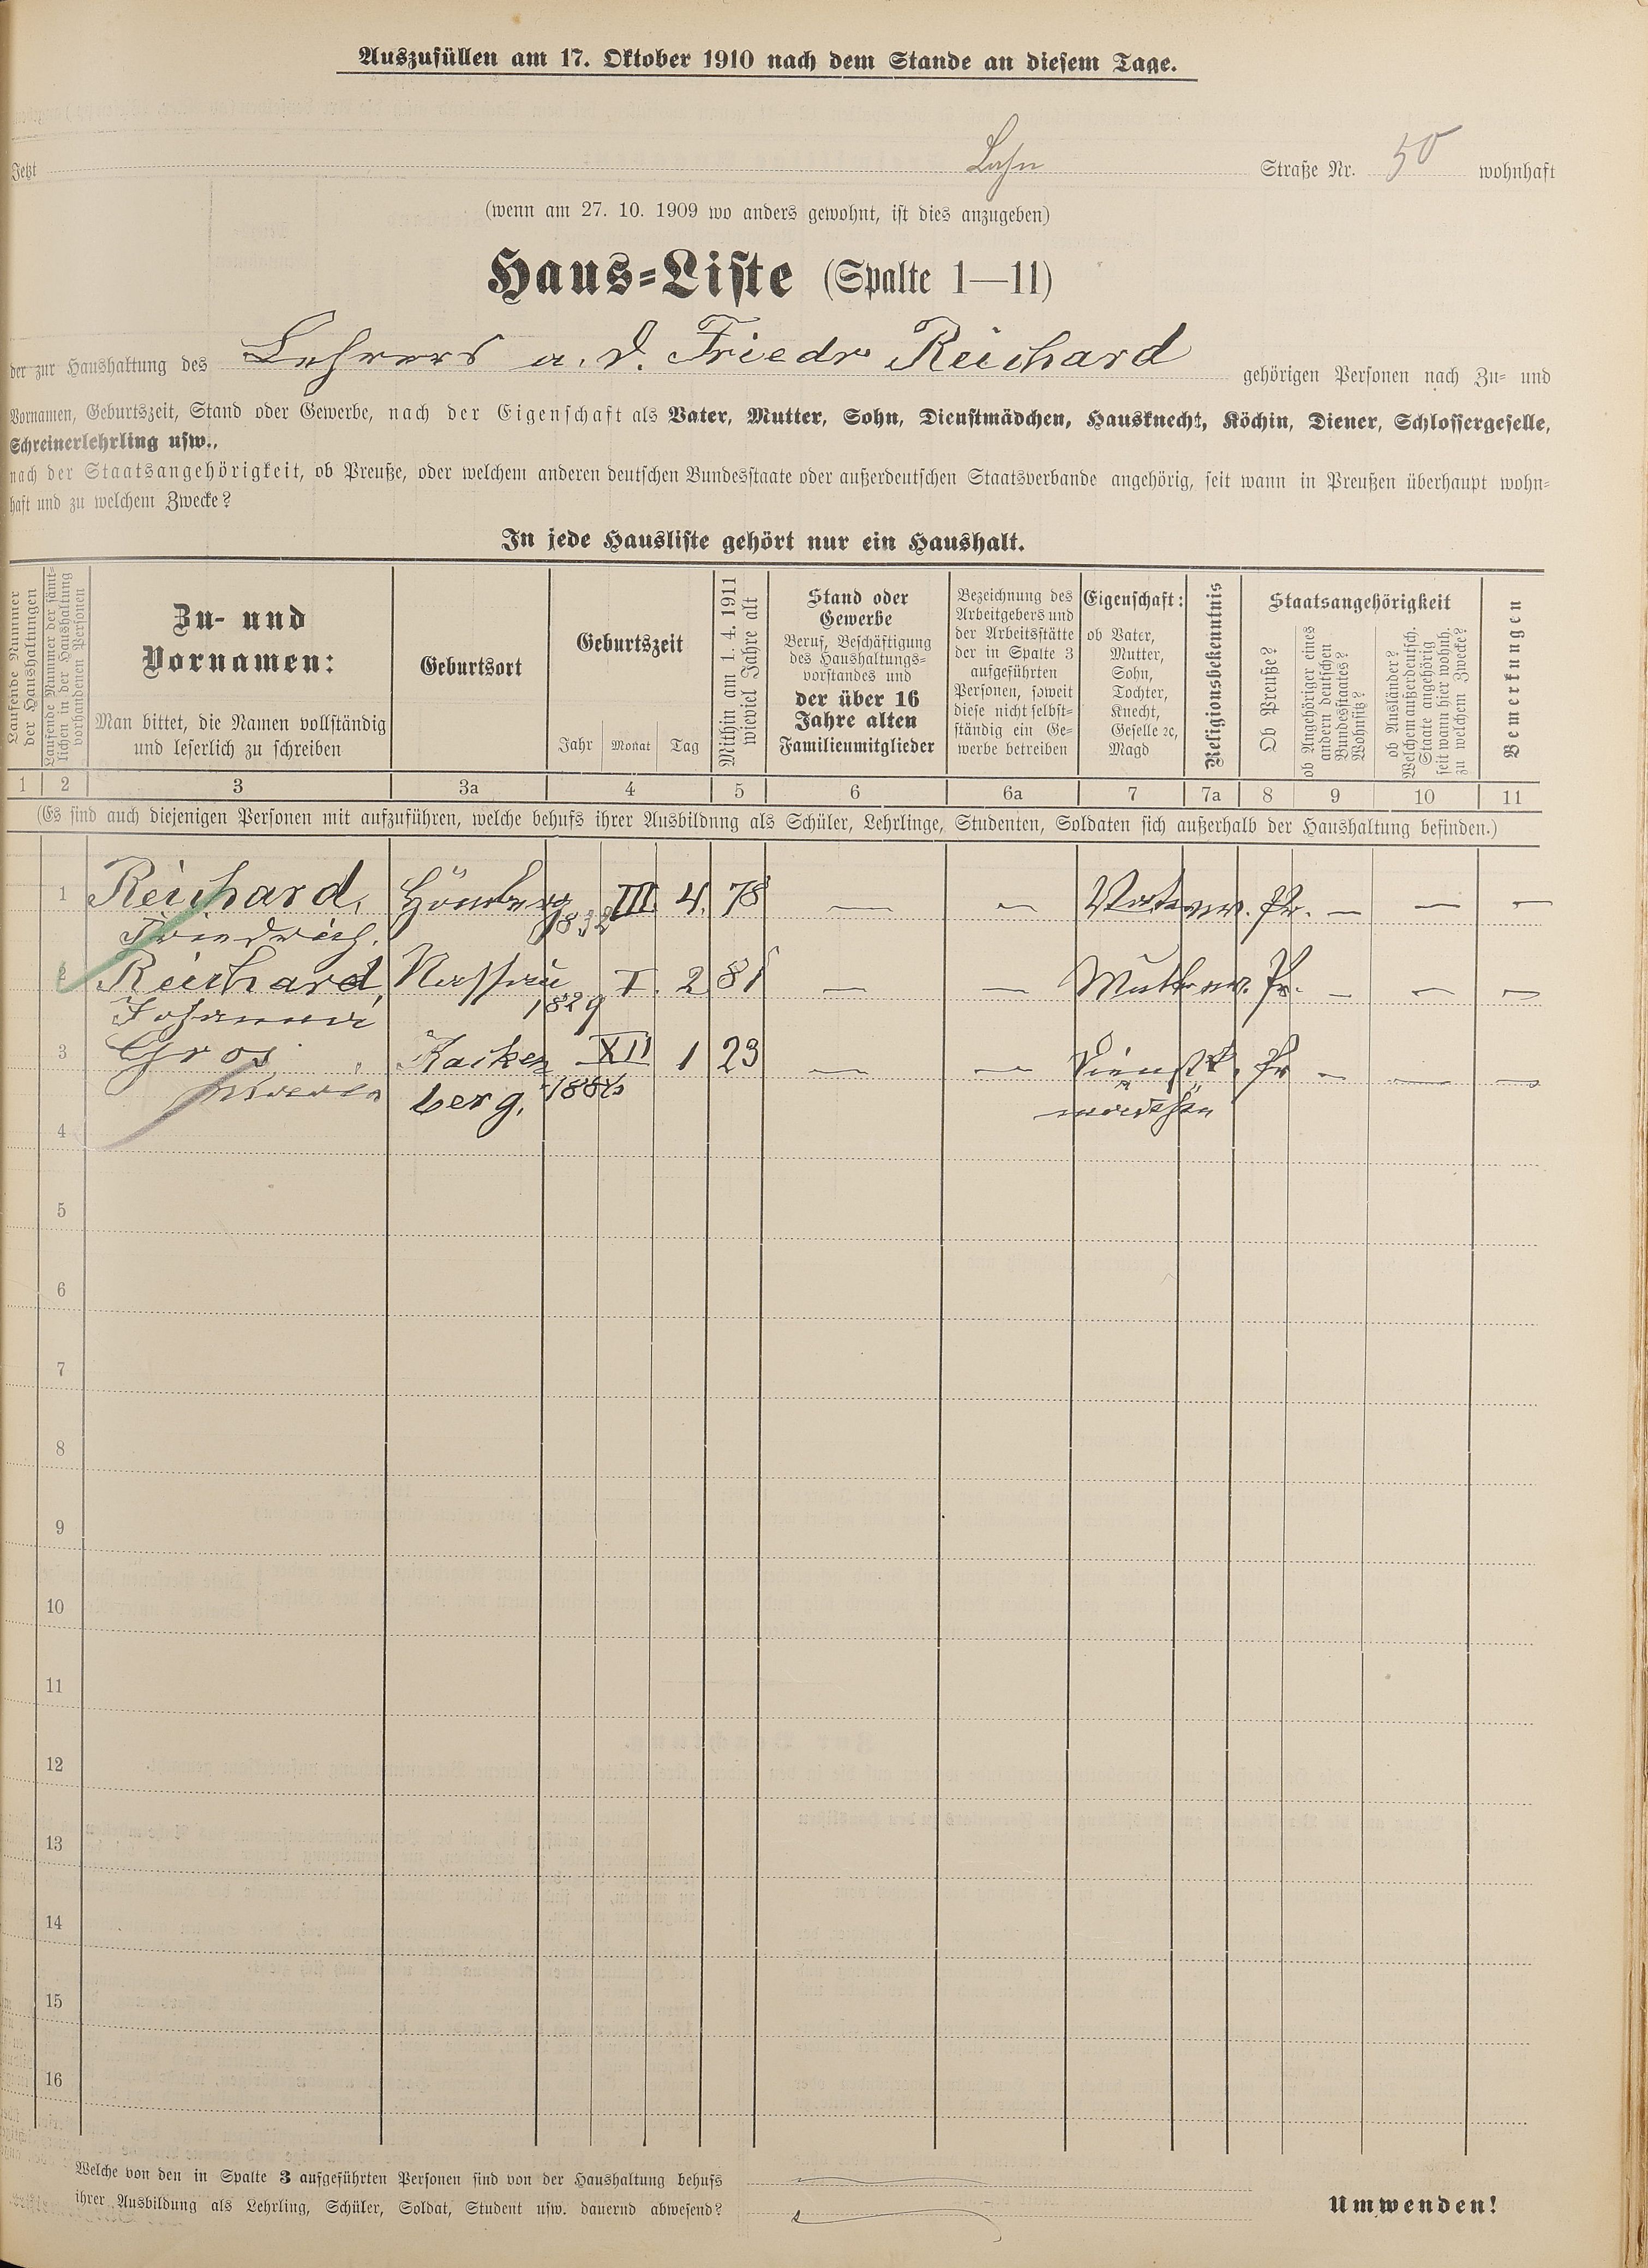 Auszufüllen am 17. Oktober 1910 nach dem Stande an diesem Tage.
Jetzt Lahn Straße Nr. 50 wohnhaft
(wenn am 27. 10. 1909 wo anders gewohnt, ist dies anzugeben)
Haus-Liste (Spalte 1—11)
der zur Haushaltung des Lehrers a. D. Friedr Reichard gehörigen Personen nach Zu- und
Vornamen, Geburtszeit, Stand oder Gewerbe, nach der Eigenschaft als Vater, Mutter, Sohn, Dienstmädchen, Hausknecht, Köchin, Diener, Schlossergeselle,
Schreinerlehrling usw.,
nach der Staatsangehörigkeit, ob Preuße, oder welchem anderen deutschen Bundesstaate oder außerdeutschen Staatsverbande angehörig, seit wann in Preußen überhaupt wohn-
haft und zu welchem Zwecke?
In jede Hausliste gehört nur ein Haushalt.
Laufende Nummer
der Haushaltungen
Laufende Nummer der sämt-
lichen in der Haushaltung
vorhandenen Personen
Zu- und
Vornamen:
Man bittet, die Namen vollständig
und leserlich zu schreiben
Geburtsort
Geburtszeit
Jahr Monat Tag
Mithin am 1. 4. 1911
wieviel Jahre alt
Stand oder
Gewerbe
Beruf, Beschäftigung
des Haushaltungs-
vorstandes und
der über 16
Jahre alten
Familienmitglieder
Bezeichnung des
Arbeitgebers und
der Arbeitsstätte
der in Spalte 3
aufgeführten
Personen, soweit
diese nicht selbst-
ständig ein Ge-
werbe betreiben
Eigenschaft:
ob Vater,
Mutter,
Sohn,
Tochter,
Knecht,
Geselle ꝛc,
Magd
Religionsbekenntnis
Staatsangehörigkeit
Ob Preuße?
ob Angehöriger eines
andern deutschen
Bundesstaates?
Wohnsitz?
ob Ausländer?
Welchem außerdeutsch.
Staate angehörig
seit wann hier wohnh.
zu welchem Zwecke?
Bemerkungen
1 2 3 3a 4 5 6 6a 7 7a 8 9 10 11
(Es sind auch diejenigen Personen mit aufzuführen, welche behufs ihrer Ausbildung als Schüler, Lehrlinge, Studenten, Soldaten sich außerhalb der Haushaltung befinden.)
1 Reichard, Hömberg III. 4. 78 — — Vater ev. Pr. — — —
Friedrich. 1832
2 Reichard, Nassau I. 2 81 — — Mutter ev. Pr. — — —
Johanna 1829
3 Gros Kacken XII 1 23 — — Dienst- Pr — — —
berg.
mädchen
4
5
6
7
8
9
10
11
12
13
14
15
16
Welche von den in Spalte 3 aufgeführten Personen sind von der Haushaltung behufs
ihrer Ausbildung als Lehrling, Schüler, Soldat, Student usw. dauernd abwesend?
Umwenden!